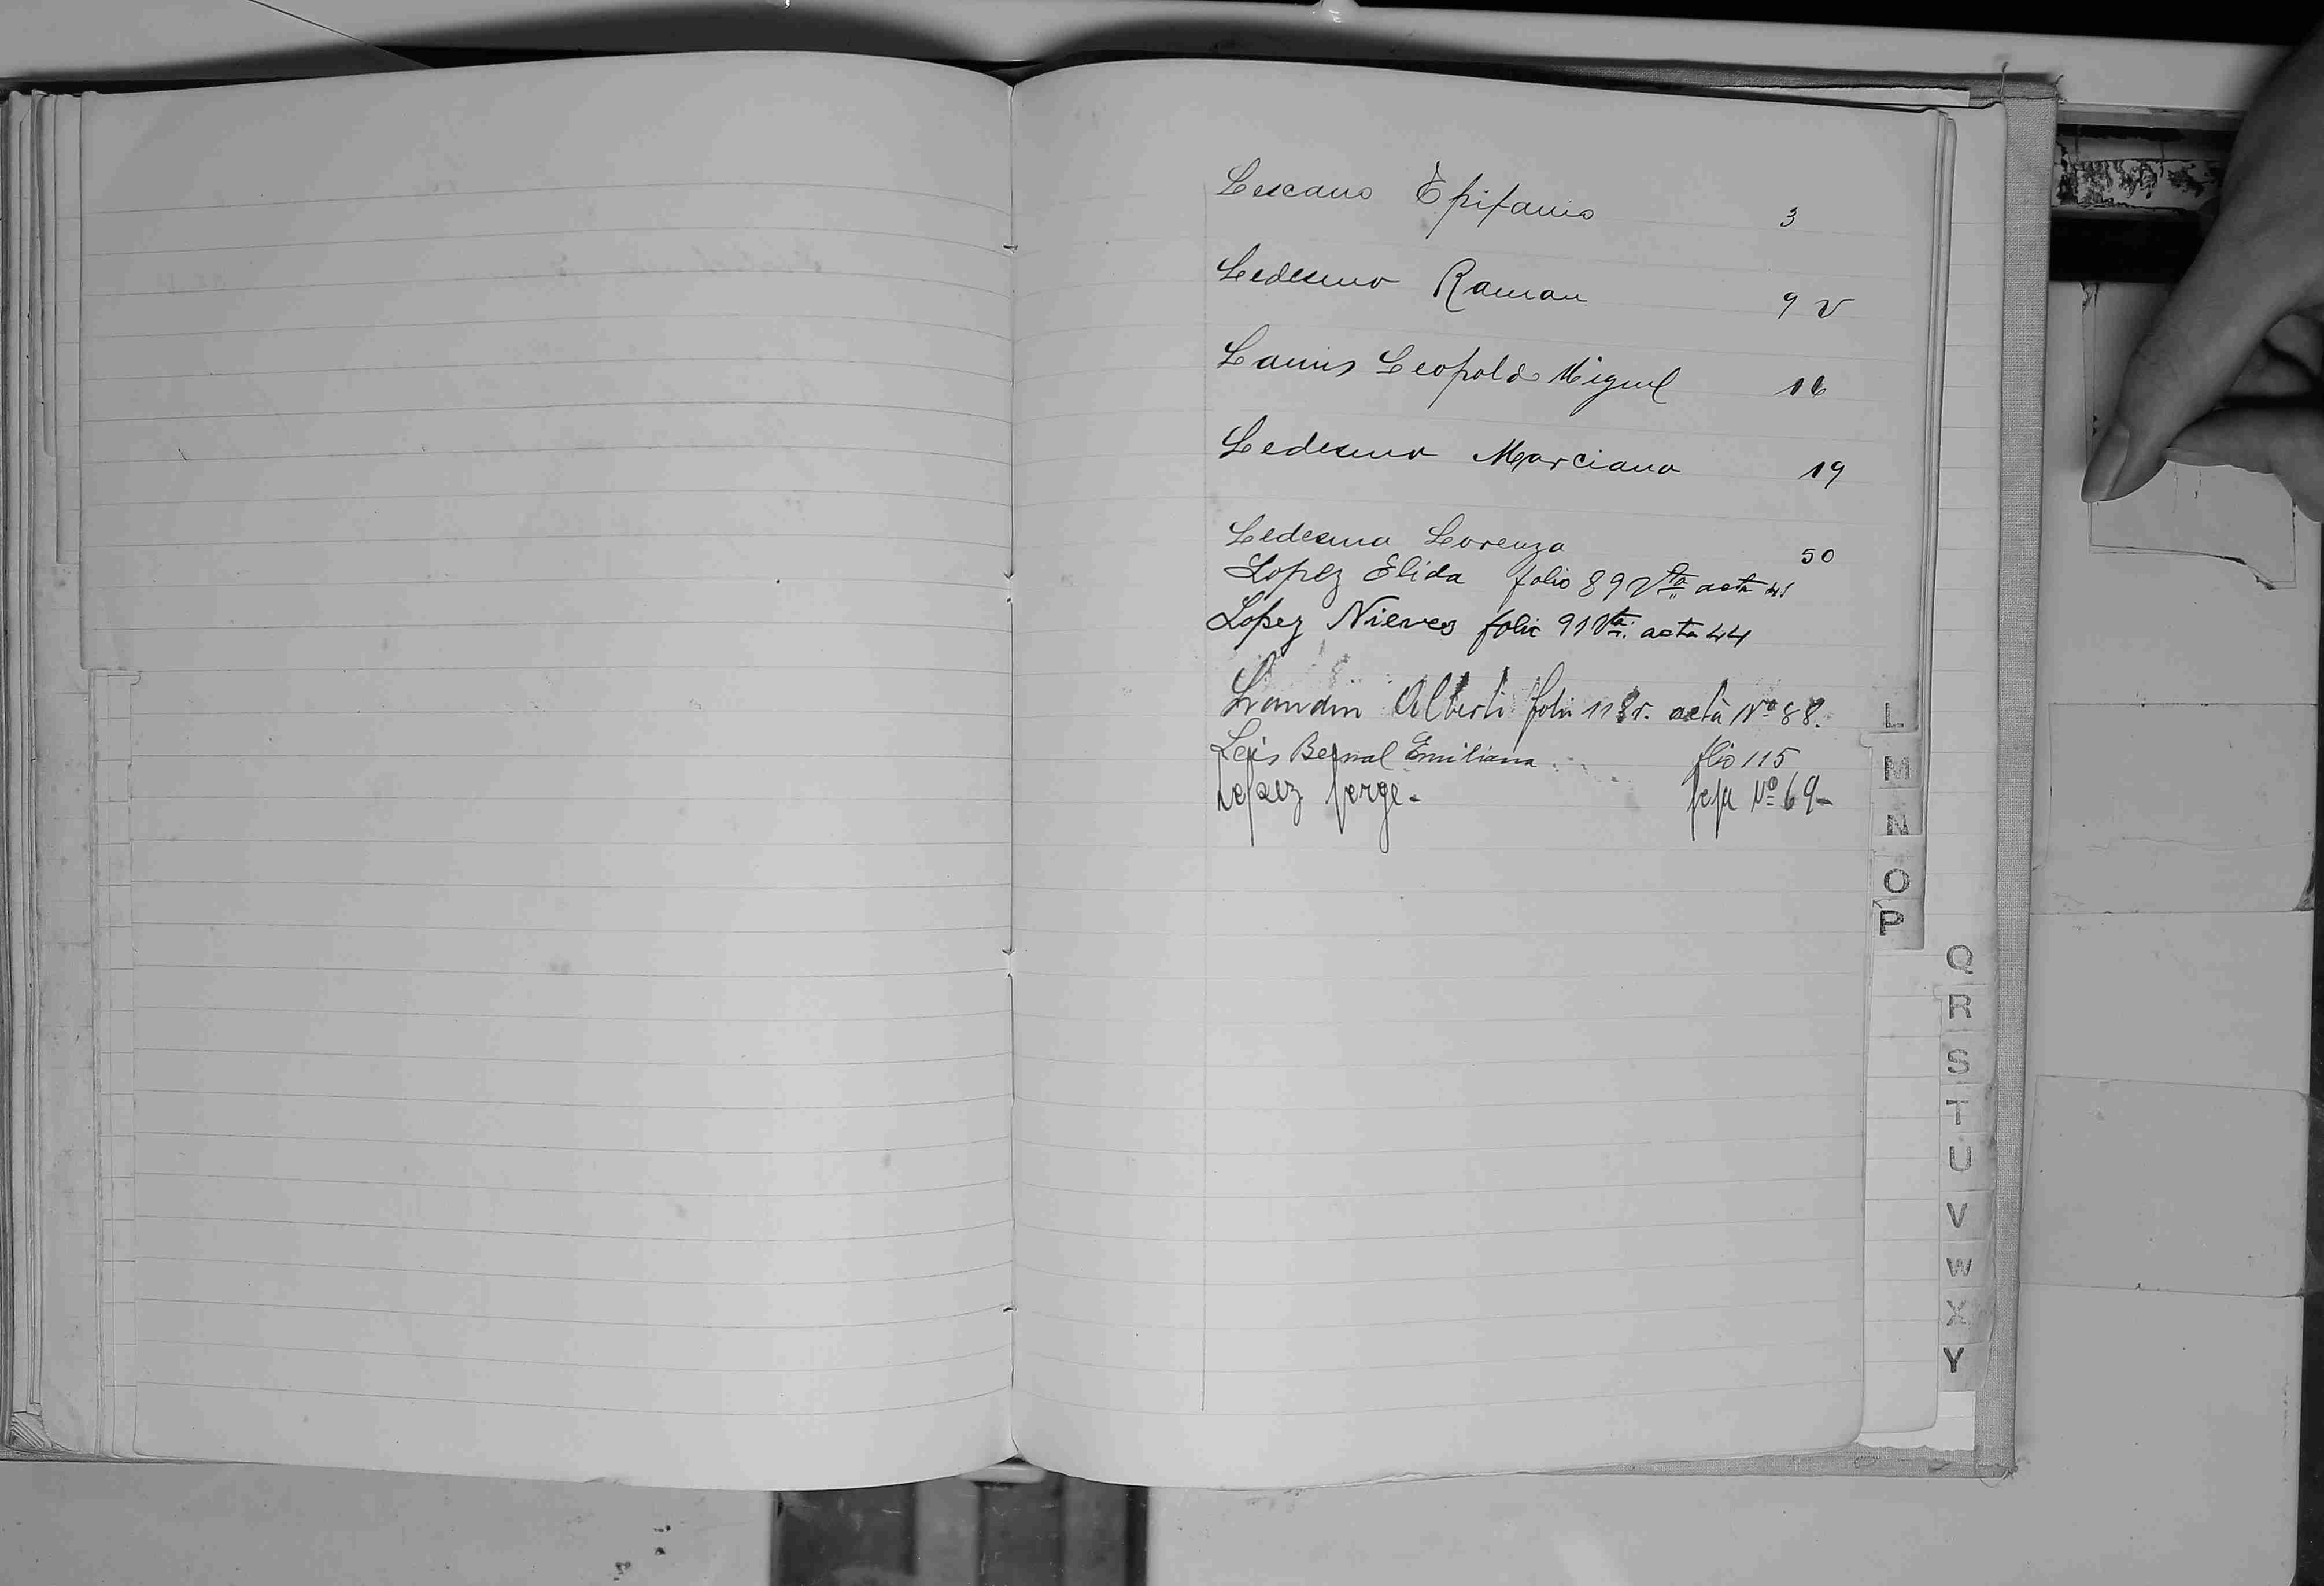 Lescano Epifanio 3
Ledesma Ramon 9 v
Lanus Leopoldo Miguel 16
Ledesma Marciana 19
Ledesma Lorenza 50
Lopez Elida folio 89 Vta acta 41
Lopez Nieves folio 91 Vta. acta 44
Alberti folio 118 r. acta Nº 88.
Leis Bernal Emiliana flio 115
Lopez Jorge. foja Nº 69-
L
M
N
O
P
Q
R
S
T
U
V
W
X
Y